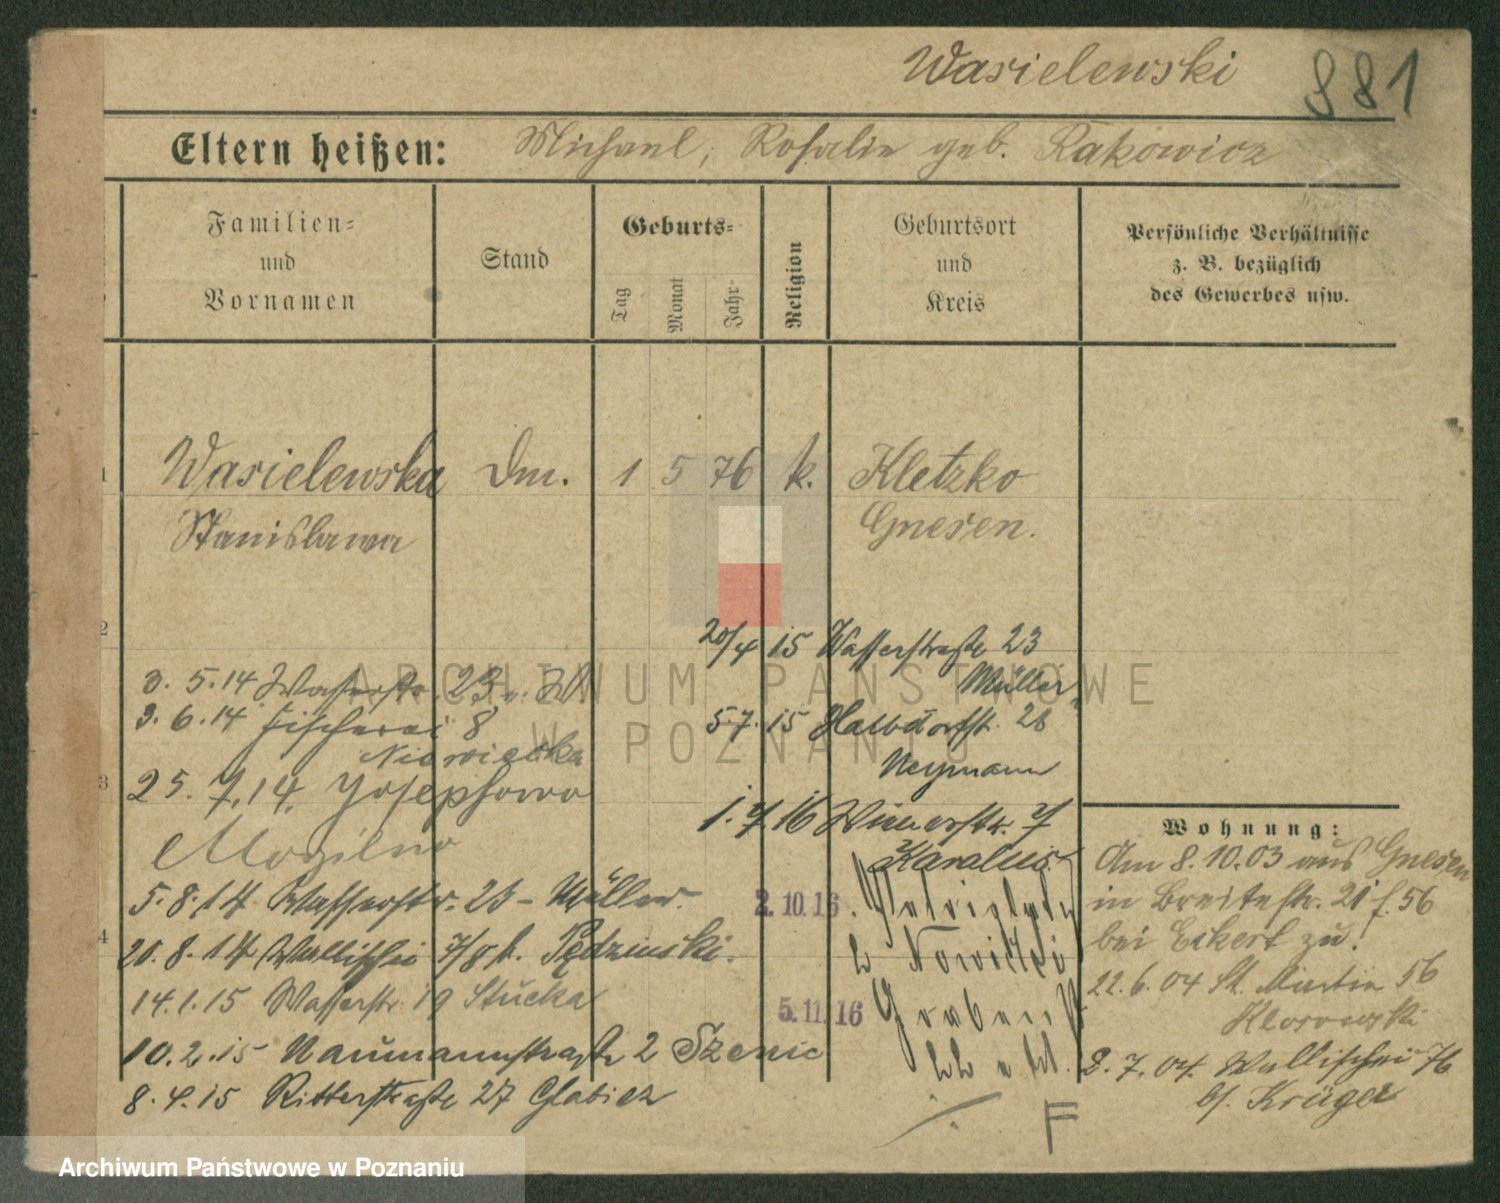 Wasielewski
881
Eltern heißen: Michael, Rosalie geb. Rakowicz
Familien-
und
Vornamen
Stand
Geburts-
Tag
Monat
Jahr-
Religion
Geburtsort
und
Kreis
Persönliche Verhältnisse
z. B. bezüglich
des Gewerbes usw.
1
Wasielewska
Stanislawa
1 5 76 k.
Kletzko
Gnesen.
2
3
4
3. 5. 14 Wasserstr. 23
3. 6. 14 Fischerei 8
25. 7. 14. Josephowo
Mogilno
5. 8. 14 Wasserstr. 23 - Müller.
20. 8. 14 Wallischei 7/8 b. Pędzinski.
14. 1. 15 Wasserstr. 19 Stucka
10. 2. 15 Naumannstraße 2 Szenic
8. 4. 15 Ritterstraße 27 Glabicz
20/4 15 Wasserstraße 23
Müller
5. 7. 15 Halbdorfstr. 28
Neymann
1. 7. 16 Wienerstr. 7
Karalus
2. 10. 16
5. 11. 16 Graben
F
Wohnung:
Am 8. 10. 03 aus Gnesen
in Breitestr. 21 f. 56
bei Eckert zu.
22. 6. 04 St. Martin 56
2. 7. 04. Wallischei 76
b/. Krüger
ARCHIWUM PAŃSTWOWE
W POZNANIU
Archiwum Państwowe w Poznaniu